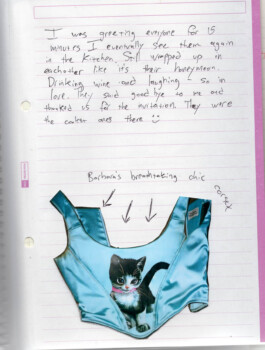 I was greeting everyone for 15
minutes. I eventually see them again
in the kitchen. Still wrapped up in
eachother like it's their honeymoon.
Drinking wine and laughing so in
love. They said goodbye to me and
thanked us for the invitation. They were
the coolest ones there
Barbara's breathtaking chic
corset